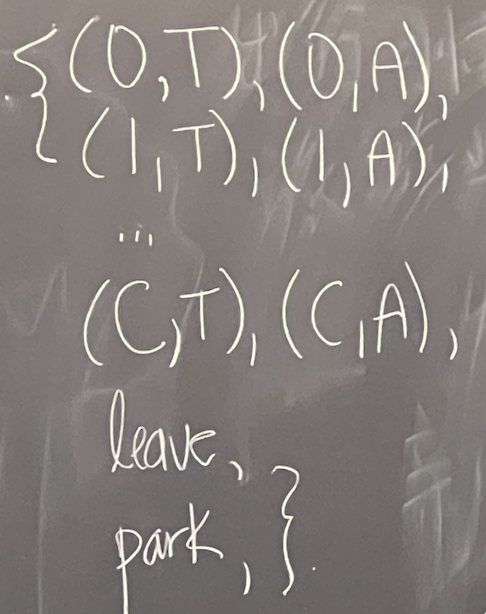 {(0,T),(0,A),
(1,T),(1,A),
...
(C,T),(C,A),
leave,
park,}.